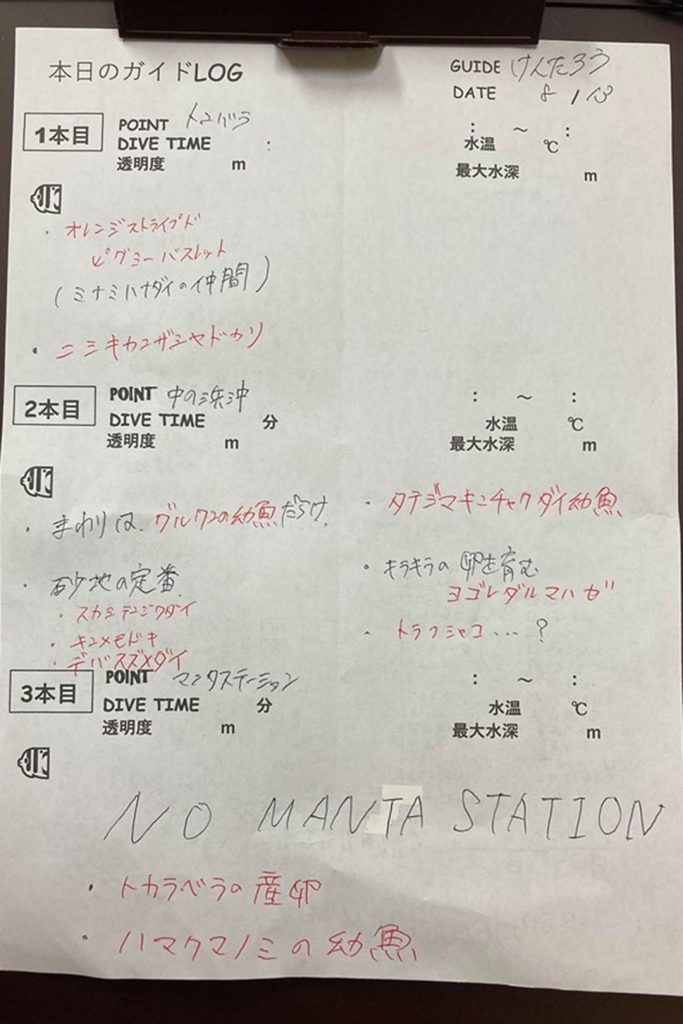 本日のガイドLOG
GUIDE けんたろう
DATE 8/13
1本目
POINT トコバラ
DIVE TIME :
透明度 m
: ～ :
水温 ℃
最大水深 m
・オレンジストライプド
ピグミーバスレット
(ミナミハナダイの仲間)
・ニシキカンザシヤドカリ
2本目
POINT 中の浜沖
DIVE TIME 分
透明度 m
: ～ :
水温 ℃
最大水深 m
・まわりは、グルクンの幼魚だらけ
・砂地の定番
・スカシテンジクダイ
・キンメモドキ
・デバスズメダイ
・タテジマキンチャクダイ幼魚
・キラキラの卵を育む
ヨゴレダルマハゼ
・トラフシャコ...?
3本目
POINT マンタステーション
DIVE TIME 分
透明度 m
: ～ :
水温 ℃
最大水深 m
NO MANTA STATION
・トカラベラの産卵
・ハマクマノミの幼魚